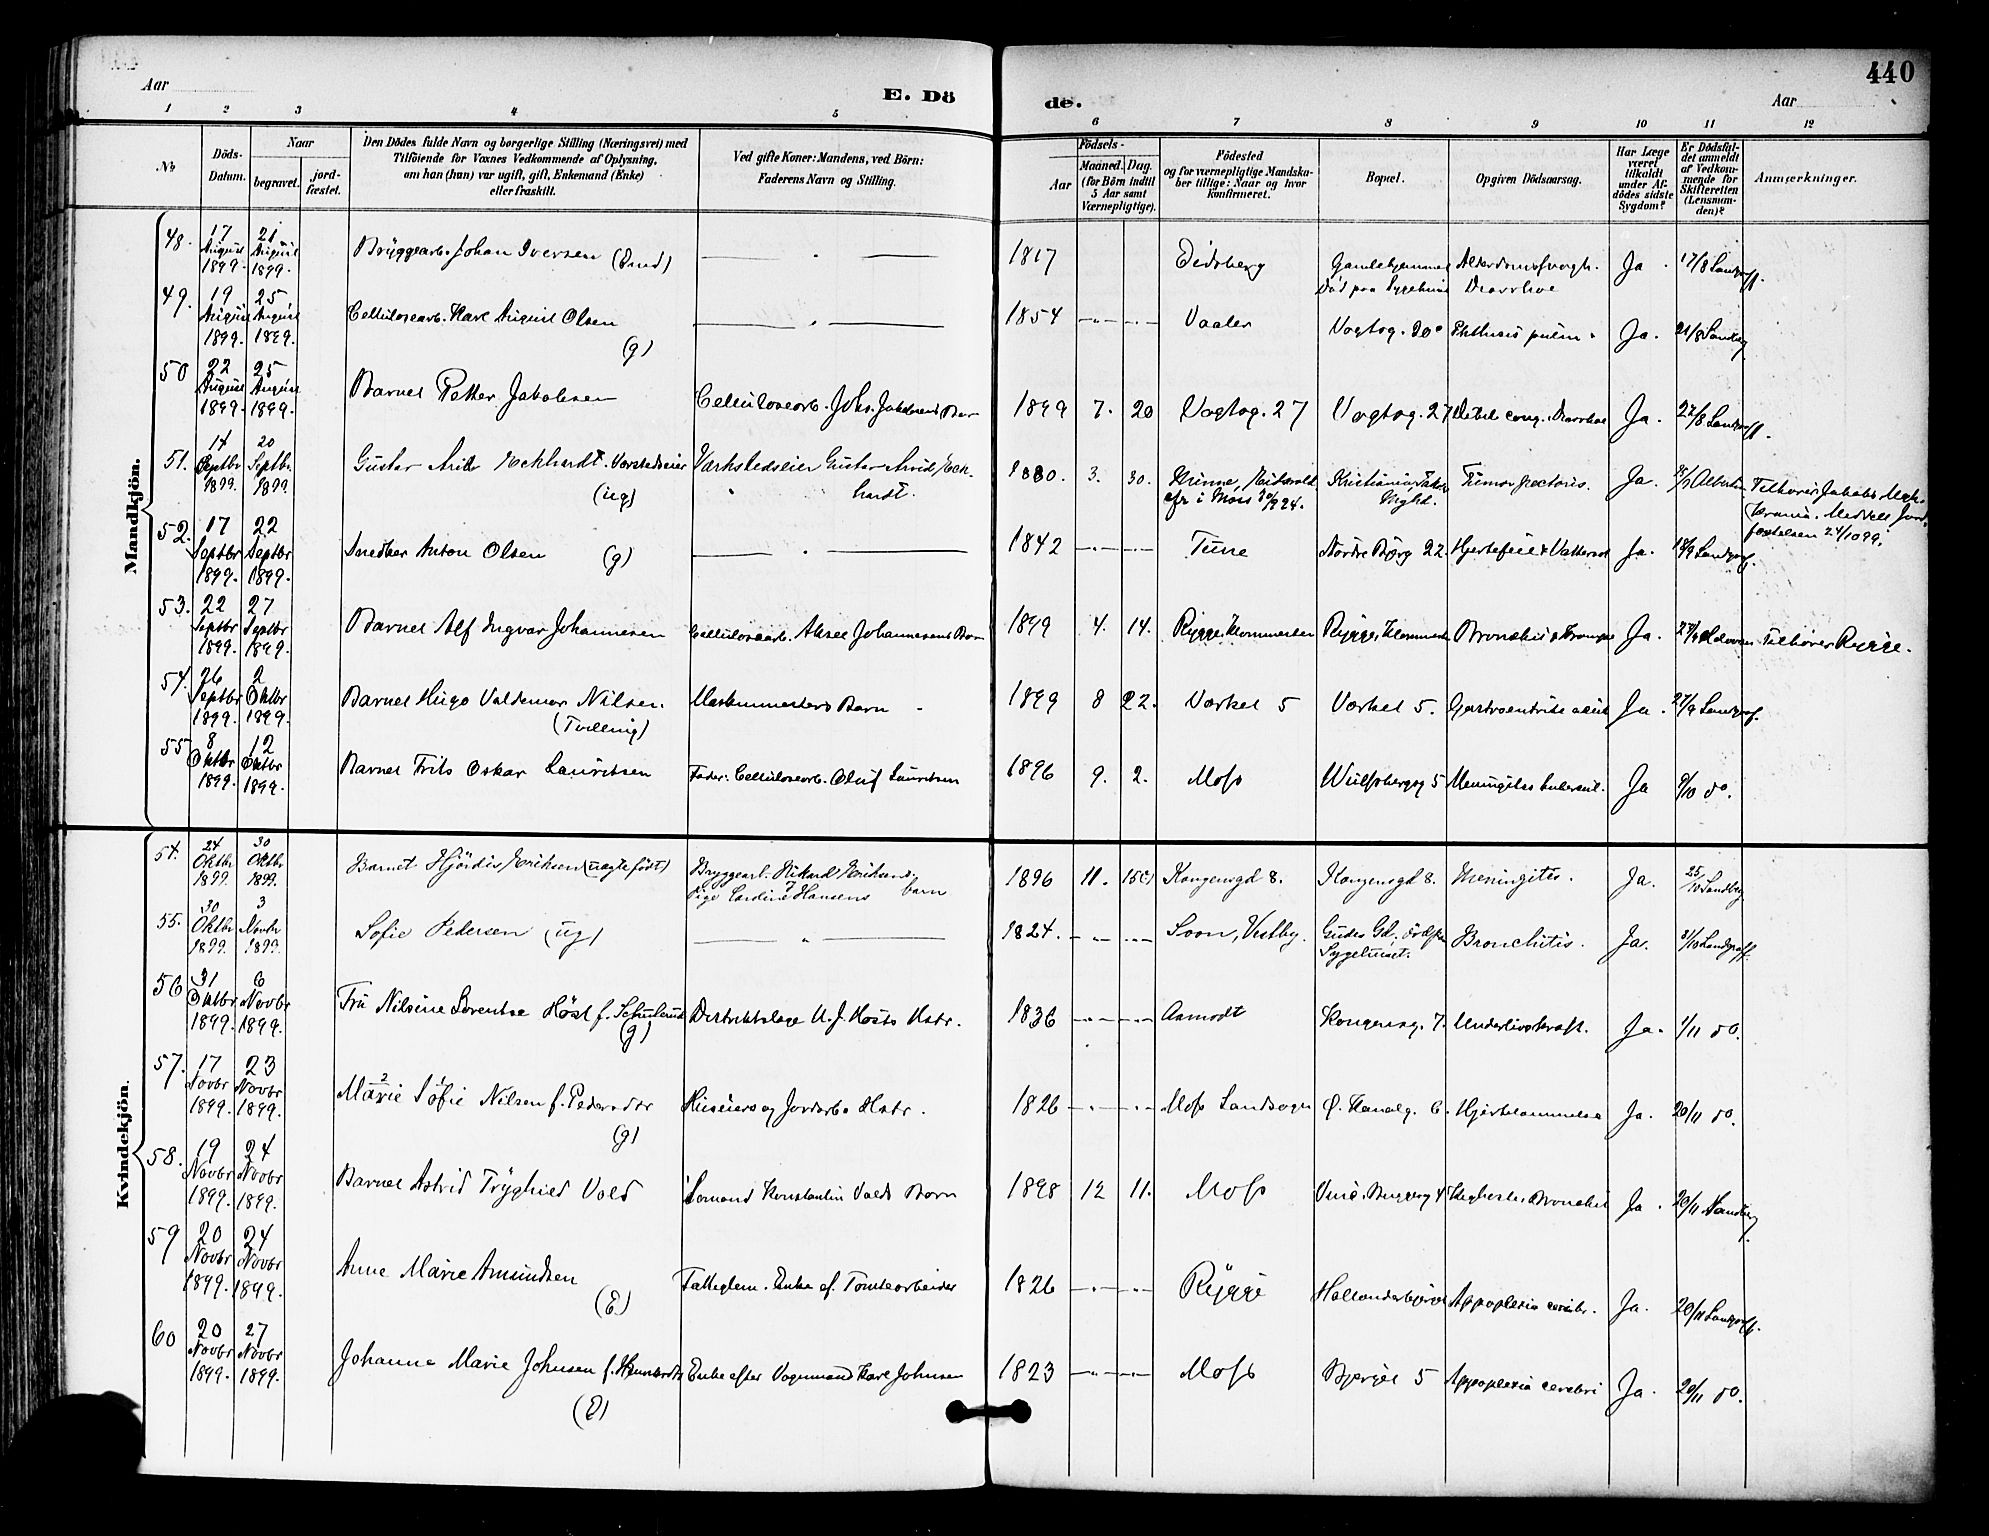 440
Aar
E. Dö
de.
Aar
1 2 3 4 5 6 7 8 9 10 11 12
No
Döds-
Datum.
Naar
begravet.
jord-
fæstet.
Den Dödes fulde Navn og borgerlige Stilling (Næringsvei) med
Tilföiende for Voxnes Vedkommende af Oplysning,
om han (hun) var ugift, gift, Enkemand (Enke)
eller fraskilt.
Ved gifte Koner: Mandens, ved Börn:
Faderens Navn og Stilling.
Födsels-
Aar
Maaned.
Dag.
(for Börn indtil
5 Aar samt
Værnepligtige).
Födested
og for værnepligtige Mandska-
ber tillige: Naar og hvor
konfirmeret.
Bopæl.
Opgiven Dödsaarsag.
Har Læge
været
tilkaldt
under Af-
dödes sidste
Sygdom?
Er Dödsfal-
det anmeldt
af Vedkom-
mende for
Skifteretten
(Lensman-
den)?
Anmærkninger.
Mandkjön.
48. 17 August 1899. 21 August 1899. Bryggearb. Johan Iversen 1817 Eidsberg Ja. 17/8
49. 19 August 1899. 25 August 1899. Cellulosearb. Karl August Olsen (g) 1854 Vaaler Vogtog. 20 Phthisis pulm. Ja. 21/8
50 22 August 1899. 25 August 1899. Barnet Petter Jakobsen Cellulosearb. Johs. Jakobsens Barn 1899 7. 20 Vogtog. 27 Vogtog. 27 Ja. 22/8
51. 14 Septbr 1899. 20 Septbr. 1899. Gustav Arvid Eckhardt. (ug) Værkstedseier Gustav Arvid Eck-
hardt. 1880. 3. 30. Tumor pectoris. Ja. Tilhører Jakobs Mgh.
Kr.ania. Meddelt Jord-
fæstelsen 24/10 99.
52. 17 Septbr 1899. 22 Septbr 1899. Snedker Anton Olsen (g) 1842 Tune Nordre Bjerg 22. Hjertefeil & Vattersot Ja. 18/9
53. 22 Septbr 1899. 27 Septbr 1899. Barnet Alf Ingvar Johannesen Cellulosearb. Aksel Johannesens Barn 1899 4. 14. Rygge, Rygge, Ja. Tilhører Rygge.
54. 26 Septbr 1899. 2 Oktbr 1899. Barnet Hugo Valdemar Nilsen. (Tvilling) Barn 1899 8 22. Værket 5 Værket 5. Gastroentrite akut Ja. 27/9 Landgraf.
55 8 Oktbr 1899. 12 Oktbr 1899. Barnet Frits Oskar Lauritsen Fader: Cellulosearb. Oluf Lauritsen 1896 9. 2. Moss Wulfsbergsg 5 Meningites tubercul. Ja 9/10 do.
Kvindekjön.
54. 24 Oktbr 1899. 30 Oktbr 1899. Barnet Hjördis Eriksen (uægte født) Bryggearb. Rikard Eriksens,
Pige Lardine Hansens barn 1896 11. 15 Kongensgd 8. Kongensgd 8. Meningites. Ja. 25/10 Sandberg
55. 30 Oktbr 1899. 3 Novbr 1899. Sofie Pedersen (ug) 1824. Soon, Vestby. Gudes Gd,
Sygehuset. Bronchitis. Ja. 31/10 Landgraff.
56 31 Oktbr 1899. 6 Novbr 1899. Fru Nilsine Lorentse Høst f. Schulerud (g) Distriktslæge U. J. Høsts Hstr. 1836 Aamodt Kongensg. 7. Underlivskræft. Ja. 1/11 do.
57. 17 Novbr 1899. 23 Novbr 1899. Marie Sofie Nilsen f. Pedersdtr (g) Huseiers og Jordarb. Hstr. 1826 Moss Landsogn Ø. Kanalg. 6. Hjertelammelse Ja. 20/11 do.
58. 19 Novbr 1899. 24 Novbr 1899. Barnet Astrid Tryghild Vold Sømand Konstantin Volds Barn 1898 12 11. Moss Ja. 20/11 Sandberg.
59 20 Novbr 1899. 24 Novbr 1899. Anne Marie Amundsen (E.) Fattiglem. Enke ef. Tomtearbeider 1826 Rygge Apoplexia cerebr. Ja. 20/11 Landgraff.
60 20 Novbr 1899. 27 Novbr 1899. Johanne Marie Johnsen (E) Enke efter Vognmand Karl Johnsen 1823 Moss Bjerget 5 Apoplexia cerebri Ja. 20/11 do.